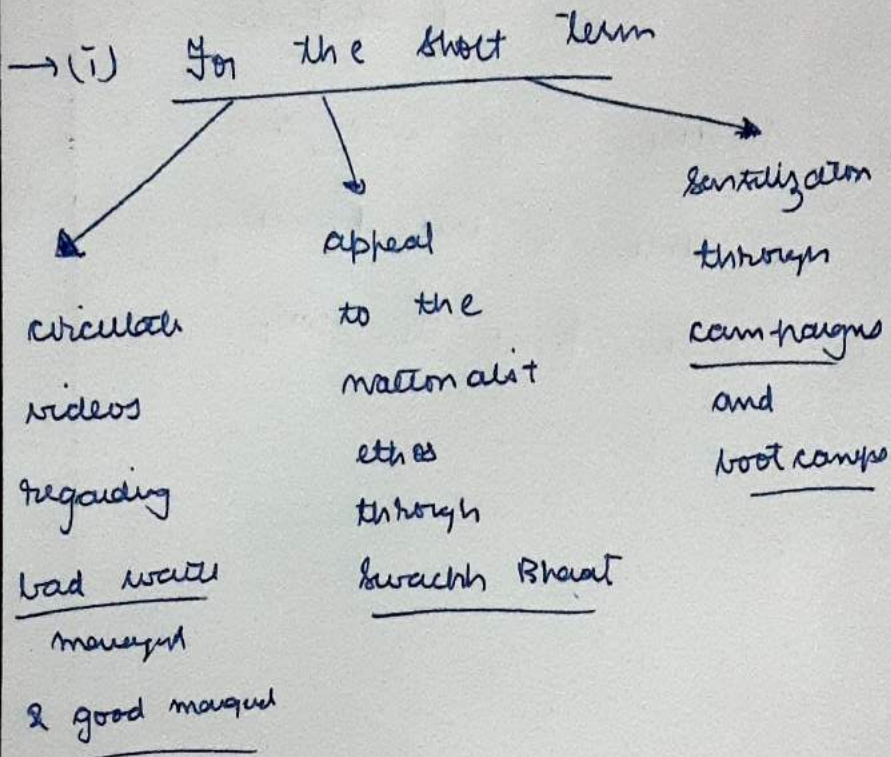 →(i) For the short term
circulate
videos
regarding
bad waste
managed
& good managed
appeal
to the
nationalist
ethos
through
Swachh Bharat
Sensitization
through
campaigns
and
boot camps